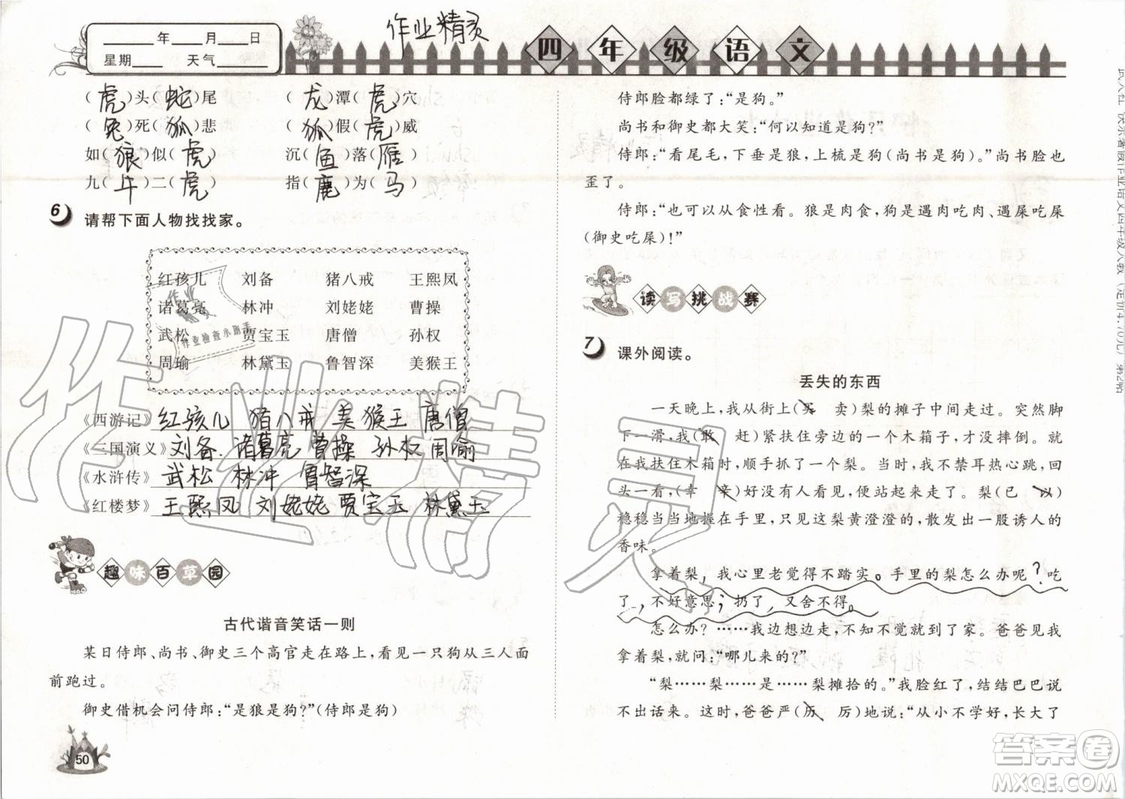 ____年____月____日
星期____ 天气____
作业精灵
四年级语文
(虎)头(蛇)尾 (龙)潭(虎)穴
(兔)死(狐)悲 (狐)假(虎)威
如(狼)似(虎) 沉(鱼)落(雁)
九(牛)二(虎) 指(鹿)为(马)
6 请帮下面人物找找家。
红孩儿 刘备 猪八戒 王熙凤
诸葛亮 林冲 刘姥姥 曹操
武松 贾宝玉 唐僧 孙权
周瑜 林黛玉 鲁智深 美猴王
《西游记》红孩儿 猪八戒 美猴王 唐僧
《三国演义》刘备、诸葛亮 曹操 孙权 周瑜
《水浒传》武松 林冲 鲁智深
《红楼梦》王熙凤 刘姥姥 贾宝玉 林黛玉
趣味百草园
古代谐音笑话一则
某日侍郎、尚书、御史三个高官走在路上，看见一只狗从三人面
前跑过。
御史借机会问侍郎：“是狼是狗？”(侍郎是狗)
50
侍郎脸都绿了：“是狗。”
尚书和御史都大笑：“何以知道是狗？”
侍郎：“看尾毛，下垂是狼，上梳是狗(尚书是狗)。”尚书脸也
歪了。
侍郎：“也可以从食性看。狼是肉食，狗是遇肉吃肉、遇屎吃屎
(御史吃屎)！”
读写挑战赛
7 课外阅读。
丢失的东西
一天晚上，我从街上(买 卖)梨的摊子中间走过。突然
脚下一滑，我(敢 赶)紧扶住旁边的一个木箱子，才没摔倒。就
在我扶住木箱时，顺手抓了一个梨。我不禁耳热心跳，回
头一看，(幸 辛)好没有人看见，便站起来走了。梨(已 以)
稳稳当当地握在手里，只见这梨黄澄澄的，散发出一股诱人的
香味。
拿着梨，我心里老觉得不踏实。手里的梨怎么办呢？吃
了，不好意思；扔了，又舍不得。
怎么办？……我边想边走，不知不觉就到了家。爸爸见我
拿着梨，就问：“哪儿来的？”
“梨……梨……是……梨摊拾的。”我脸红了，结结巴巴说
不出话来。这时，爸爸严(历 厉)地说：“从小不学好，长大了
作业精灵
答案圈
MXQE.COM